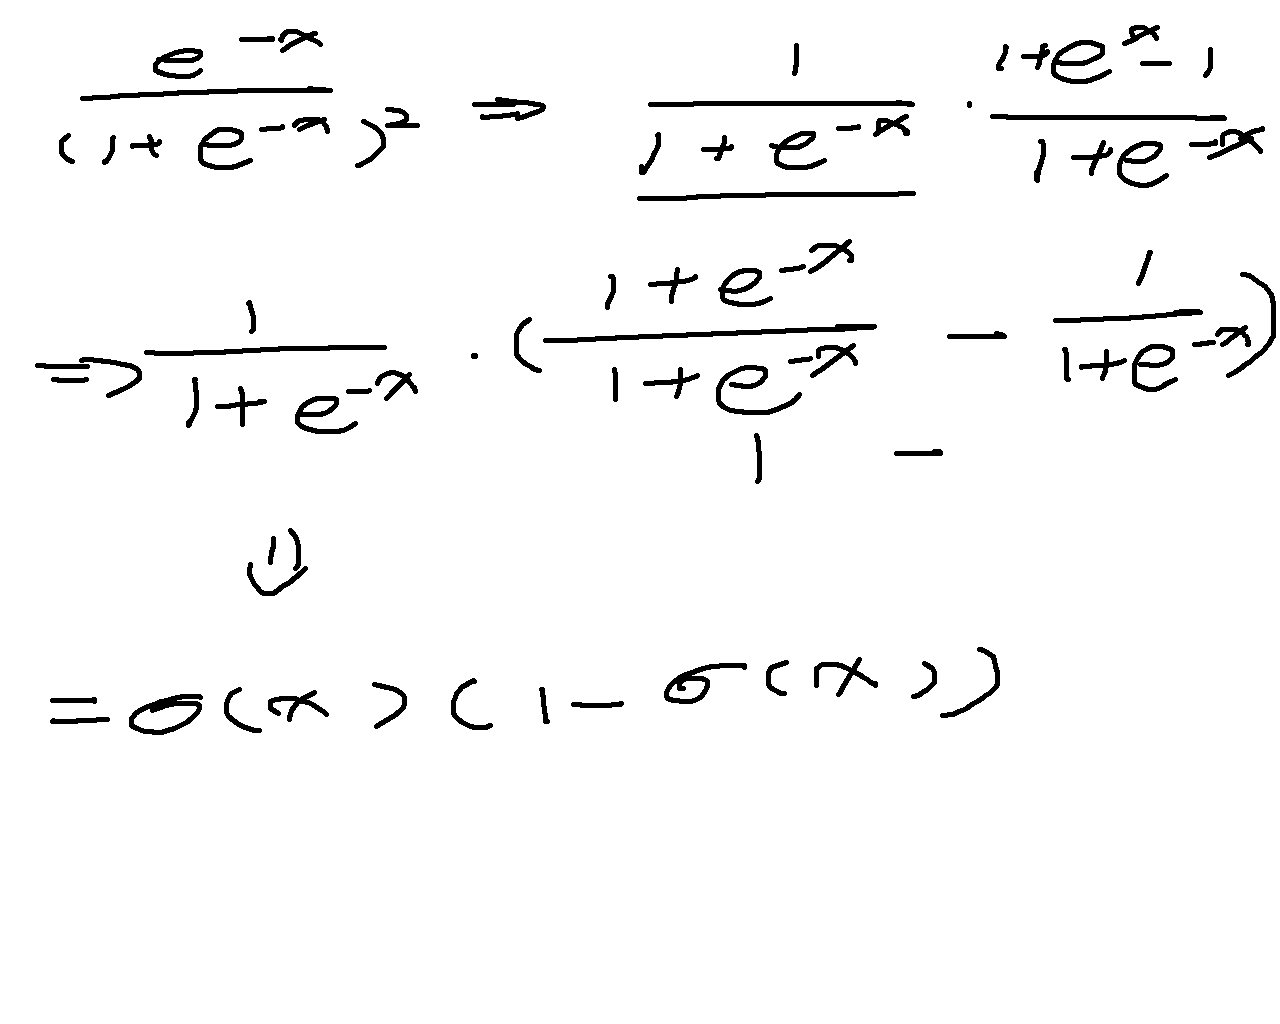 e^{-x} / (1 + e^{-x})^2 ⇒ 1 / (1 + e^{-x}) · (1 + e^x - 1) / (1 + e^{-x})
⇒ 1 / (1 + e^{-x}) · ((1 + e^{-x}) / (1 + e^{-x}) - 1 / (1 + e^{-x}))
1 -
⇓
= σ(x) (1 - σ(x))